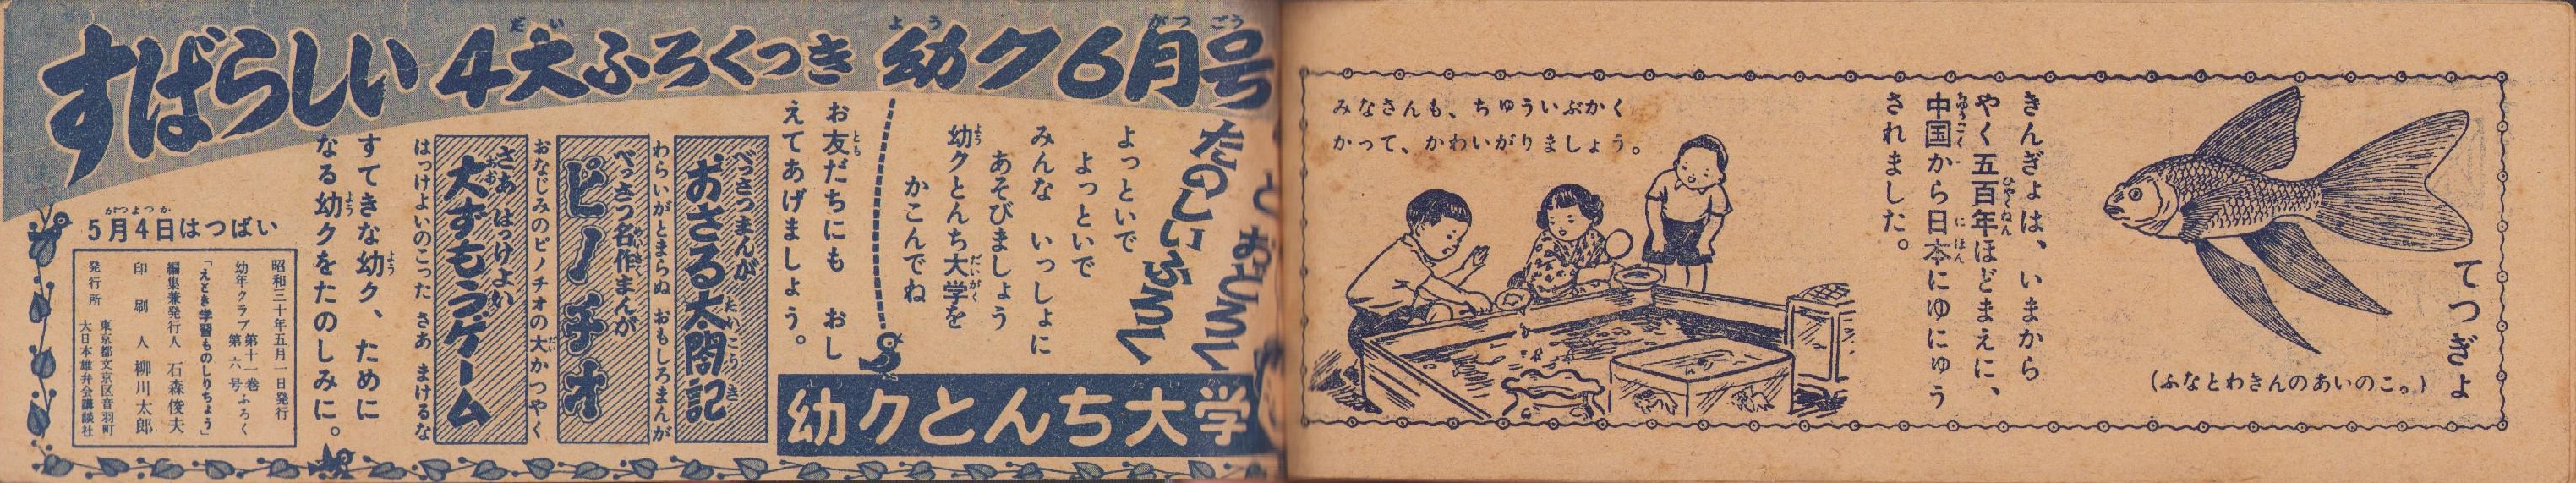 てつぎょ
(ふなとわきんのあいのこ。)
きんぎょは、いまから
やく五百年ほどまえに、
中国から日本にゆにゅう
されました。
みなさんも、ちゅういぶかく
かって、かわいがりましょう。
すばらしい 4大ふろくつき 幼ク6月号
たのしいふろく
よっといで
よっといで
みんな いっしょに
あそびましょう
幼クとんち大学を
かこんでね
幼クとんち大学
お友だちにも おし
えてあげましょう。
べっさつまんが
おさる太閤記
わらいがとまらぬ おもしろまんが
べっさつ名作まんが
ピノチオ
おなじみのピノチオの大かつやく
さあ はっけよい
大ずもうゲーム
はっけよいのこった さあ まけるな
すてきな幼ク、ために
なる幼クをたのしみに。
5月4日はつばい
昭和三十年五月一日発行
幼年クラブ 第十一巻 第六号ふろく
「えとき学習ものしりちょう」
編集兼発行人 石森俊夫
印刷人 柳川太郎
発行所 東京都文京区音羽町
大日本雄弁会講談社